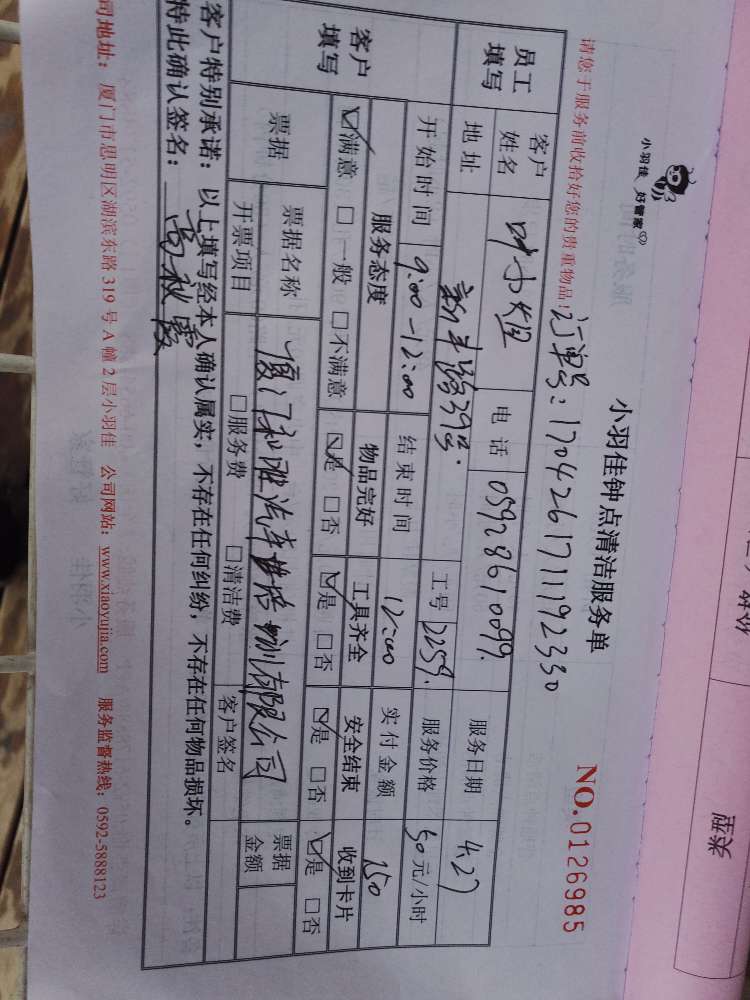 小羽佳 好管家
小羽佳钟点清洁服务单
NO.0126985
请您于服务前收拾好您的贵重物品! 订单号: 1704261711192330
员工填写 客户姓名 叶小姐 电话 05928610099. 服务日期 4.27
地址 新丰路39号. 工号 2259. 服务价格 50元/小时
开始时间 9:00-12:00 结束时间 12:00 实付金额 150
客户填写 服务态度 物品完好 工具齐全 安全结束 收到卡片
☑满意 □一般 □不满意 ☑是 □否 ☑是 □否 ☑是 □否 ☑是 □否
票据 票据名称 厦门 汽车 有限公司 票据金额
开票项目 □服务费 □清洁费 客户签名
客户特别承诺: 以上填写经本人确认属实, 不存在任何纠纷, 不存在任何物品损坏。
特此确认签名: 高秋霞
司地址: 厦门市思明区湖滨东路 319 号 A 幢 2 层小羽佳 公司网站: www.xiaoyujia.com 服务监督热线: 0592-5888123